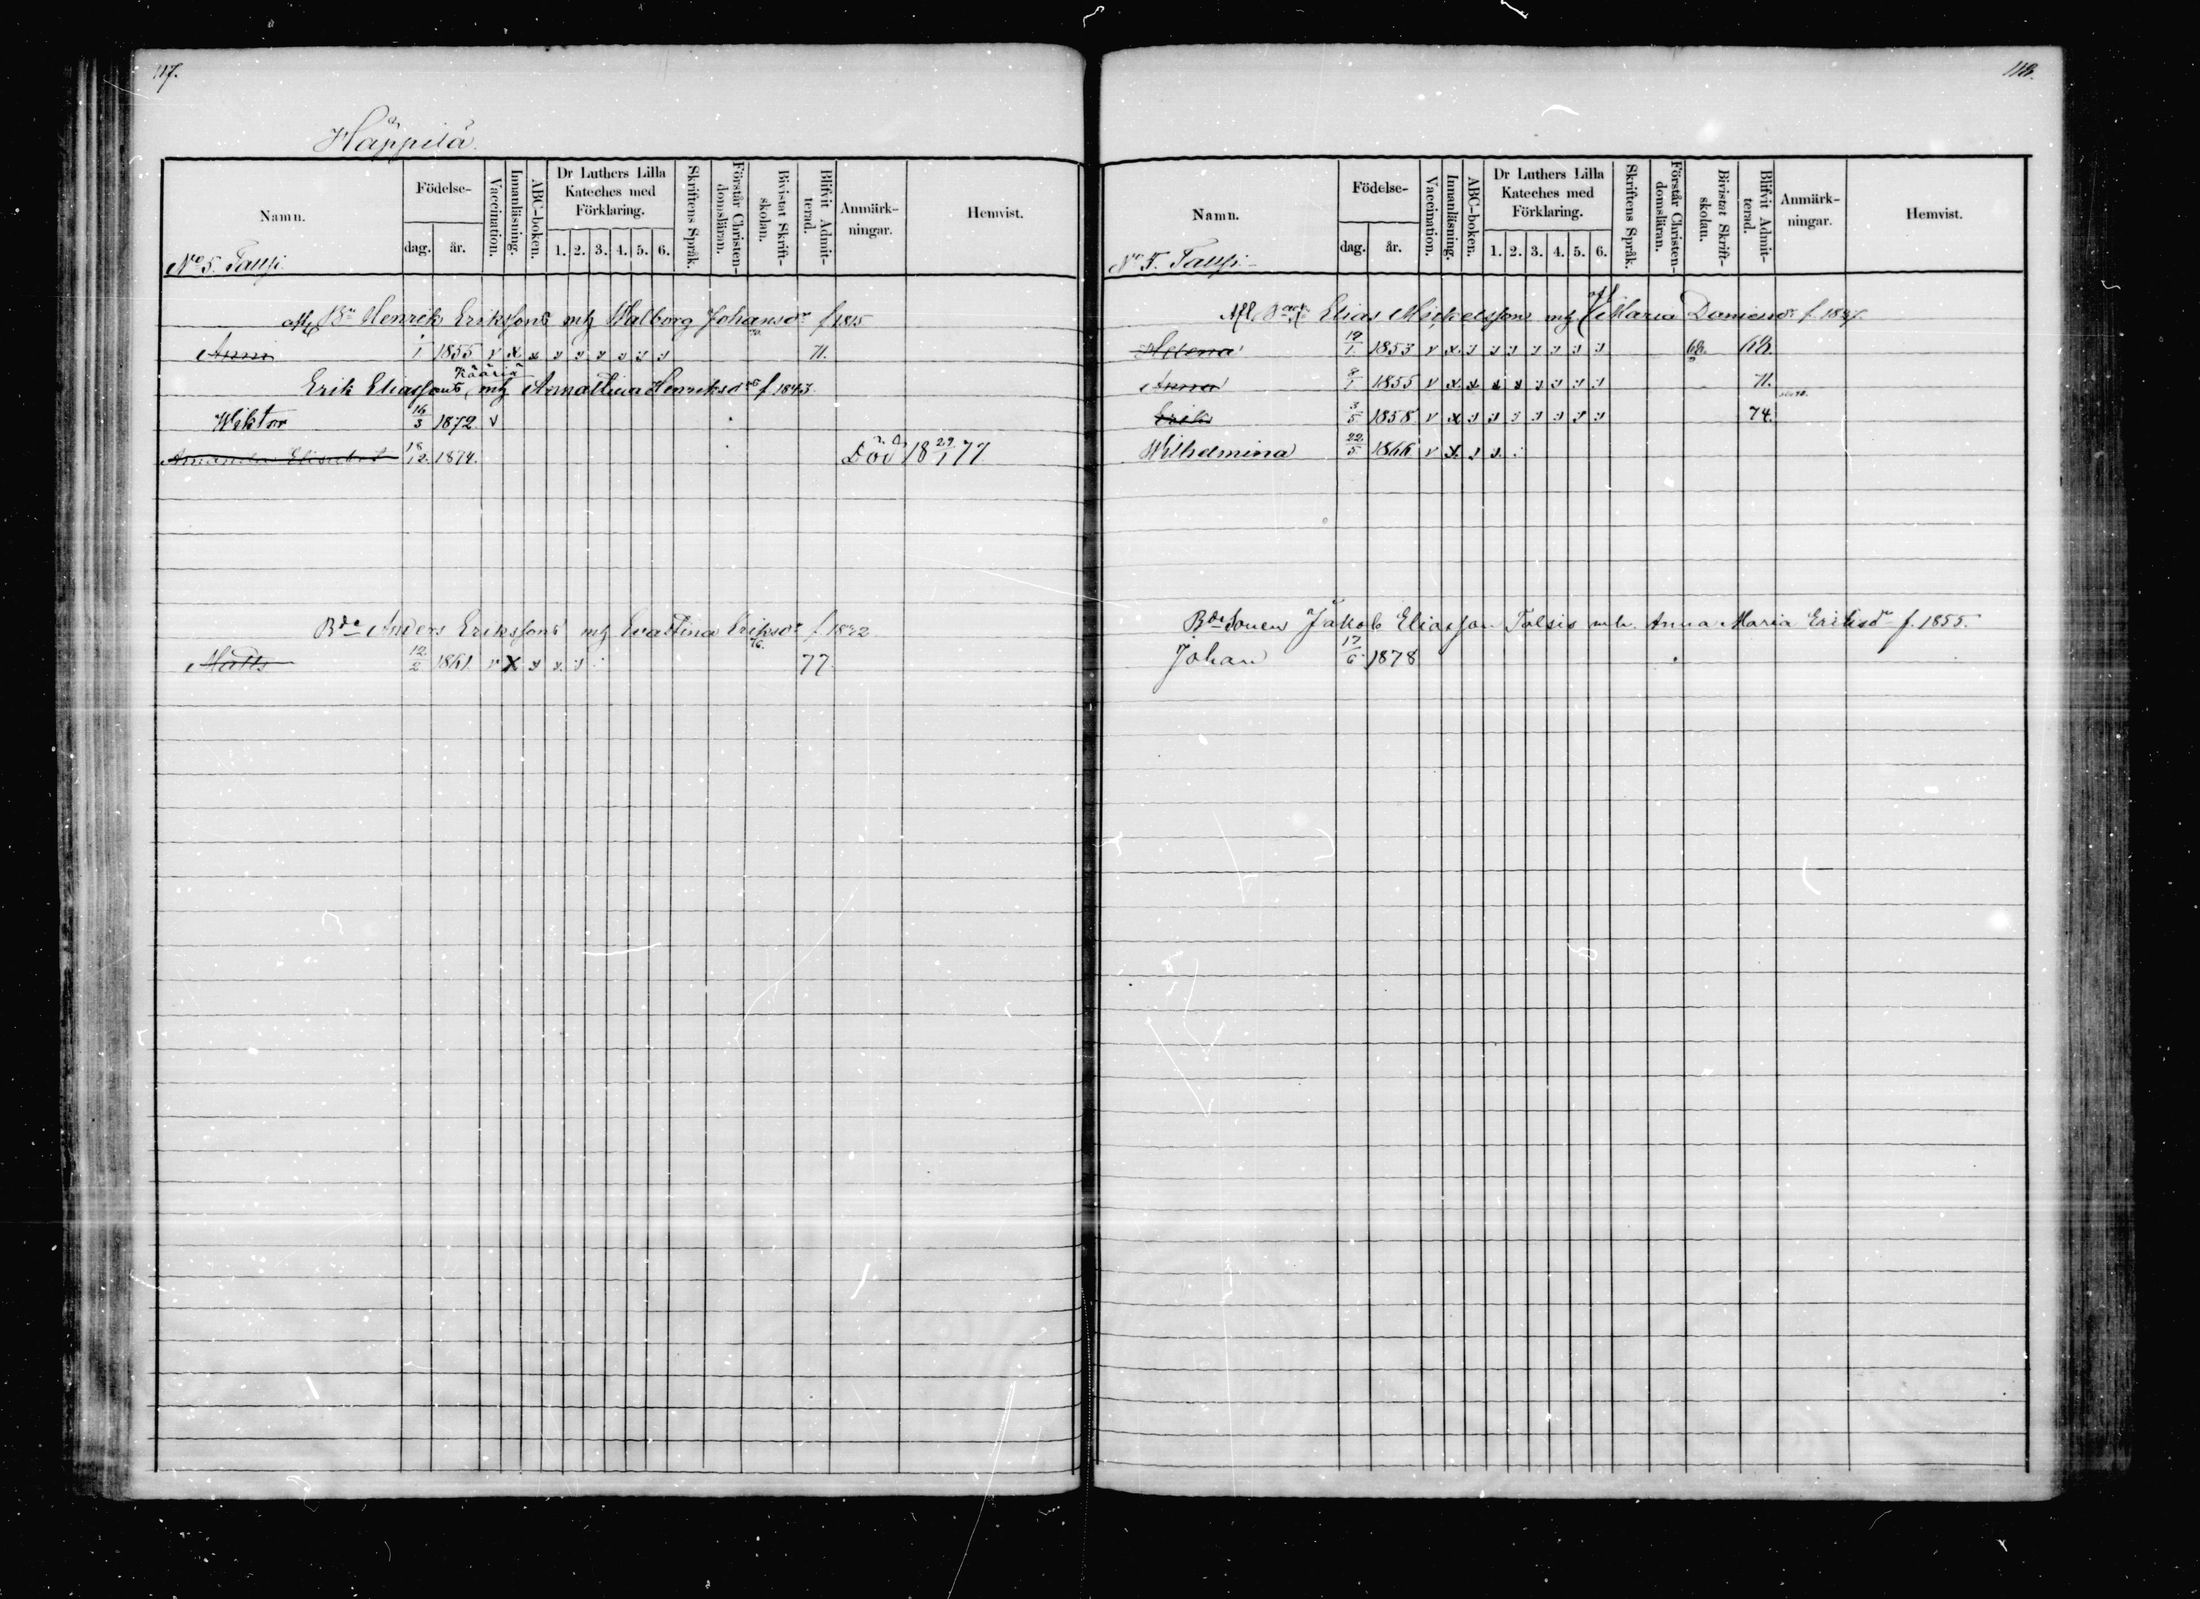 117.
Häppilä.
Namn.
Födelse-
dag. år.
Vaccination.
Innanläsning.
ABC-boken.
Dr Luthers Lilla Kateches med Förklaring.
1. 2. 3. 4. 5. 6.
Skriftens Språk.
Förstår Christendomsläran.
Bivistat Skriftskolan.
Blifvit Admitterad.
Anmärkningar.
Hemvist.
No 5.
Henrik Erikssons Walborg Johansdr f 1815
Anna 1/1 1855 v x x 71.
Kääriä
Erik Eliassons Annastina Henriksdr f 1843.
Wiktor 16/3 1872 v
Amanda Elisabet 18/12 1874. Död 18 29/1 77.
Bde Anders Erikssons Evastina Eriksdr f 1822
76.
Matts 12/2 1861 v x 77.
118.
Namn.
Födelse-
dag. år.
Vaccination.
Innanläsning.
ABC-boken.
Dr Luthers Lilla Kateches med Förklaring.
1. 2. 3. 4. 5. 6.
Skriftens Språk.
Förstår Christendomsläran.
Bivistat Skriftskolan.
Blifvit Admitterad.
Anmärkningar.
Hemvist.
No 5.
Afl. Elias Mickelssons Maria
Helena 19/1 1853 v x 68. 68.
Anna 8/1 1855 v x 71.
Erik 3/5 1858 v x 74.
Wilhelmina 22/5 1866 v x
Bdesonen Jakob Eliasson Anna Maria Eriksdr f. 1855.
Johan 17/6 1878